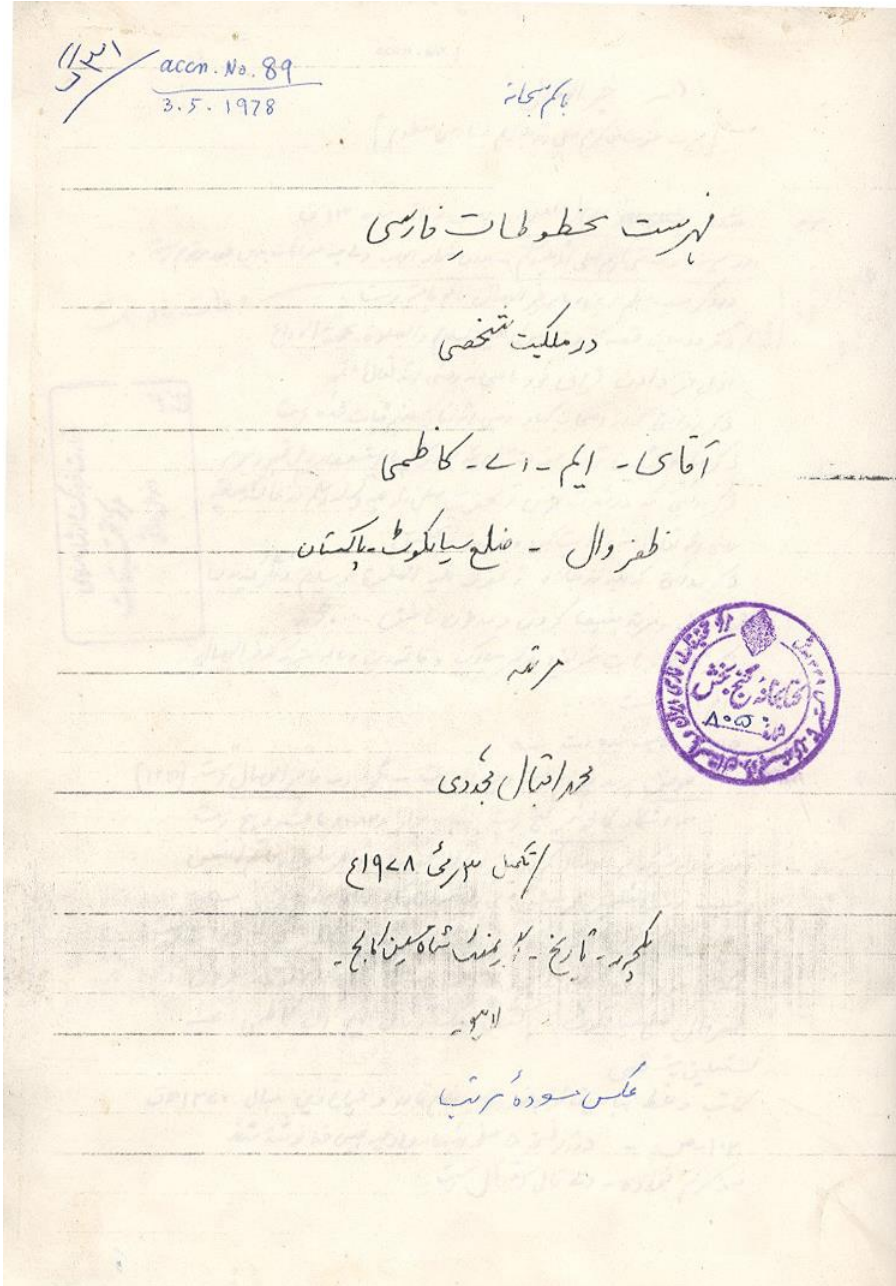 accn. No. 89
3.5.1978
باسم سبحانه
فہرست مخطوطاتِ فارسی
در ملکیت شخصی
آقای - ایم - اے - کاظمی
ظفر وال - ضلع سیالکوٹ - پاکستان
مرتبہ
محمد اقبال مجدّدی
تکمیل ۳ مئی ۱۹۷۸ع
لیکچرر - تاریخ - گورنمنٹ شاہ حسین کالج -
لاہور
عکس مسودهٔ مرتب
کتابخانه گنج بخش
۸۰۵